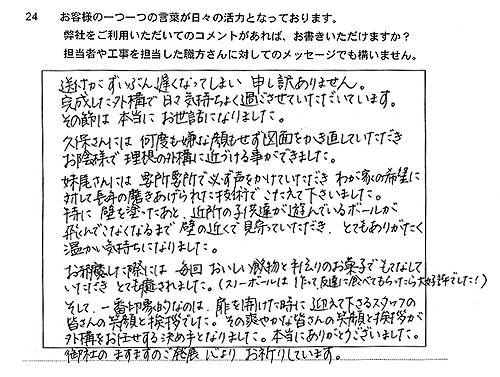 24 お客様の一つ一つの言葉が日々の活力となっております。
弊社をご利用いただいてのコメントがあれば、お書きいただけますか？
担当者や工事を担当した職方さんに対してのメッセージでも構いません。
送付がずいぶん遅くなってしまい 申し訳ありません。
完成した外構で日々気持ちよく過ごさせていただいています。
その節は 本当に お世話になりました。
久保さんには 何度も嫌な顔もせず図面をかき直していただき
お陰様で 理想の外構に近づける事ができました。
妹尾さんには 要所要所で必ず声をかけていただき わが家の希望に
対して長年の磨きあげられた技術で こたえて下さいました。
特に 壁を塗ったあと、近所の子供達が遊んでいるボールが
飛んでこなくなるまで 壁の近くで見守っていただき、とてもありがたく
温かい気持ちになりました。
お邪魔した際には 毎回 おいしい飲物と手作りのお菓子でもてなして
いただき とても癒されました。(スノーボールは 作って友達に食べてもらったら大好評でした!)
そして、一番印象的なのは、扉を開けた時に 迎えて下さるスタッフの
皆さんの笑顔と挨拶でした。その爽やかな皆さんの笑顔と挨拶が
外構をお任せする決め手となりました。本当にありがとうございました。
御社の ますますのご発展 心より お祈りしています。